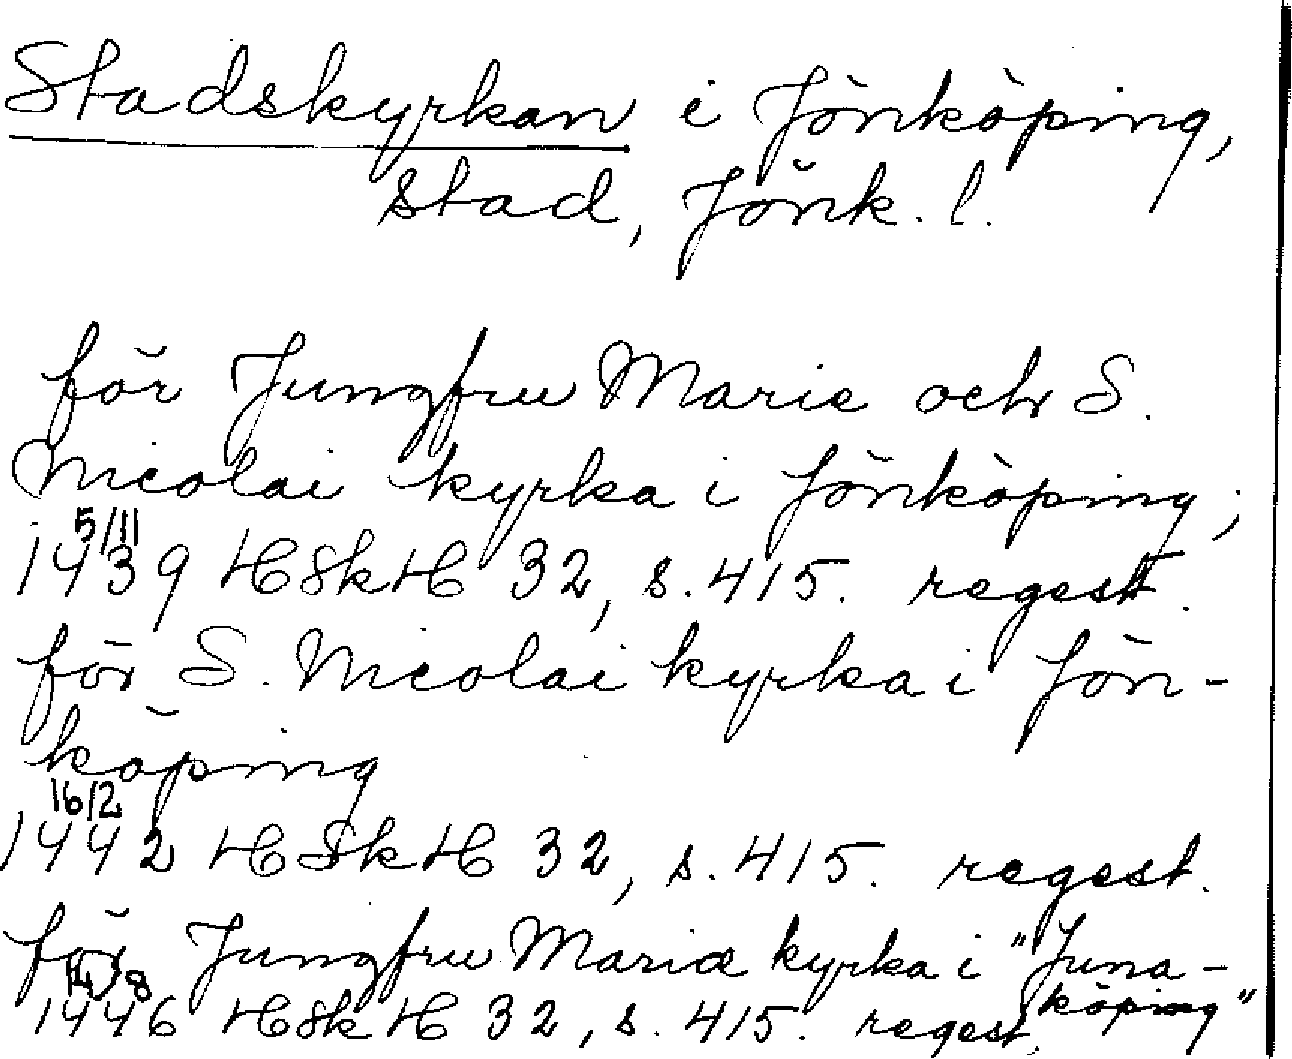 Stadskyrkan i Jönköping,
stad, Jönk. l.
för Jungfru Marie och S.
Nicolai kyrka i Jönköping;
5/11
1439 HSkH 32, s. 415. regest.
för S. Nicolai kyrka i Jön-
köping
16/2
1442 HSkH 32, s. 415. regest.
för Jungfru Mariæ kyrka i "Juna-
köping"
14/8
1446 HSkH 32, s. 415. regest.